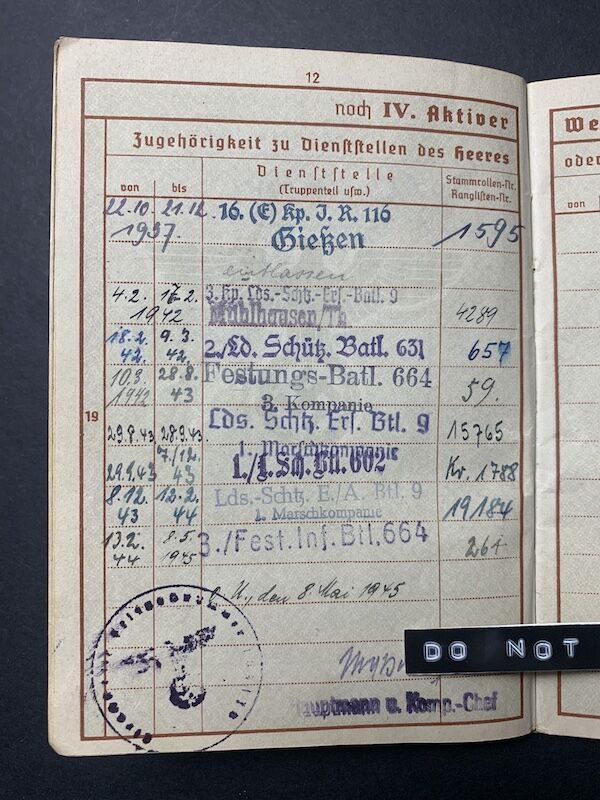 12
noch IV. Aktiver
Zugehörigkeit zu Dienststellen des Heeres
von bis Dienststelle (Truppenteil usw.) Stammrollen-Nr. Ranglisten-Nr.
22.10. 21.12. 16. (E) Kp. I. R. 116
1937. Gießen 1595
entlassen
4.2. 17.2. 3. Kp. Lds.-Schtz.-Ers.-Batl. 9
1942 Mühlhausen/Th 4289
18.2. 9.3. 2./Ld. Schütz. Batl. 631 657
42. 42.
10.3. 28.8. Festungs-Batl. 664 59.
1942 43 3. Kompanie
19
29.8.43 28.9.43. Lds. Schtz. Ers. Btl. 9 15765
1. Marschkompanie
29.9.43 7./12. 43 1./L.Sch.Btl. 602 Kr. 1788
8.12. 12.2. Lds.-Schtz. E./A. Btl. 9 19184
43 44 1. Marschkompanie
13.2. 8.5. 3./Fest.Inf.Btl.664 264
44 1945
O. U., den 8. Mai 1945
Hauptmann u. Komp.-Chef
We
oder
von
DO NOT